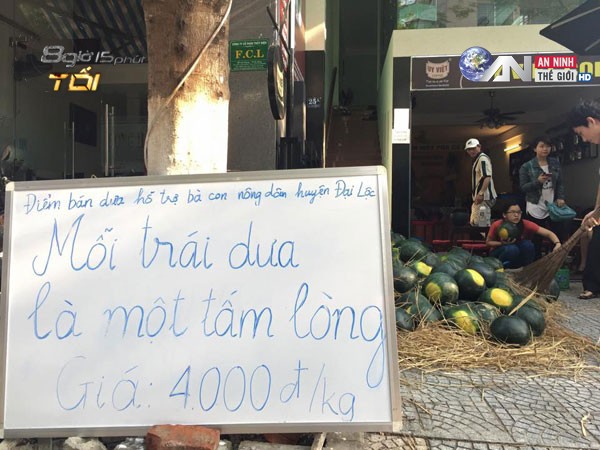 8 giờ 15 phút
TỐI
F.C.L
25A
UY VIỆT
AN
AN NINH
THẾ GIỚI HD
Điểm bán dưa hỗ trợ bà con nông dân huyện Đại Lộc
Mỗi trái dưa
là một tấm lòng
Giá: 4.000 đ/kg